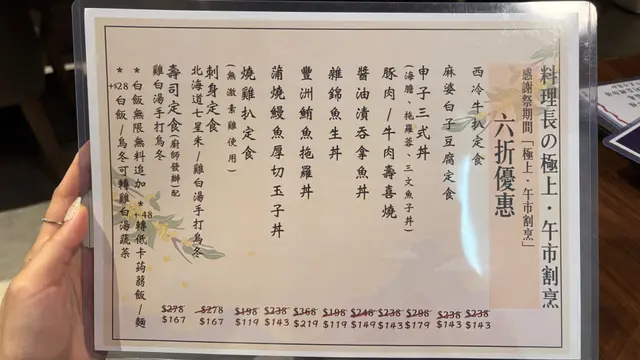 料理長の極上・午市割烹
感謝祭期間「極上・午市割烹」
六折優惠
西冷牛扒定食 $238 $143
麻婆白子豆腐定食 $238 $143
申子三式丼 $298 $179
(海膽、拖羅蓉、三文魚子丼)
豚肉/牛肉壽喜燒 $238 $143
醬油漬吞拿魚丼 $248 $149
雜錦魚生丼 $198 $119
豐洲鮪魚拖羅丼 $368 $219
蒲燒鰻魚厚切玉子丼 $238 $143
燒雞扒定食 $198 $119
(無激素雞使用)
刺身定食 $278 $167
北海道七星米/雞白湯手打烏冬
壽司定食(廚師發辦)配 $278 $167
雞白湯手打烏冬
*白飯無限無料追加 *+48轉低卡蒟蒻飯/麵
*+$28白飯/烏冬可轉雞白湯蔬菜